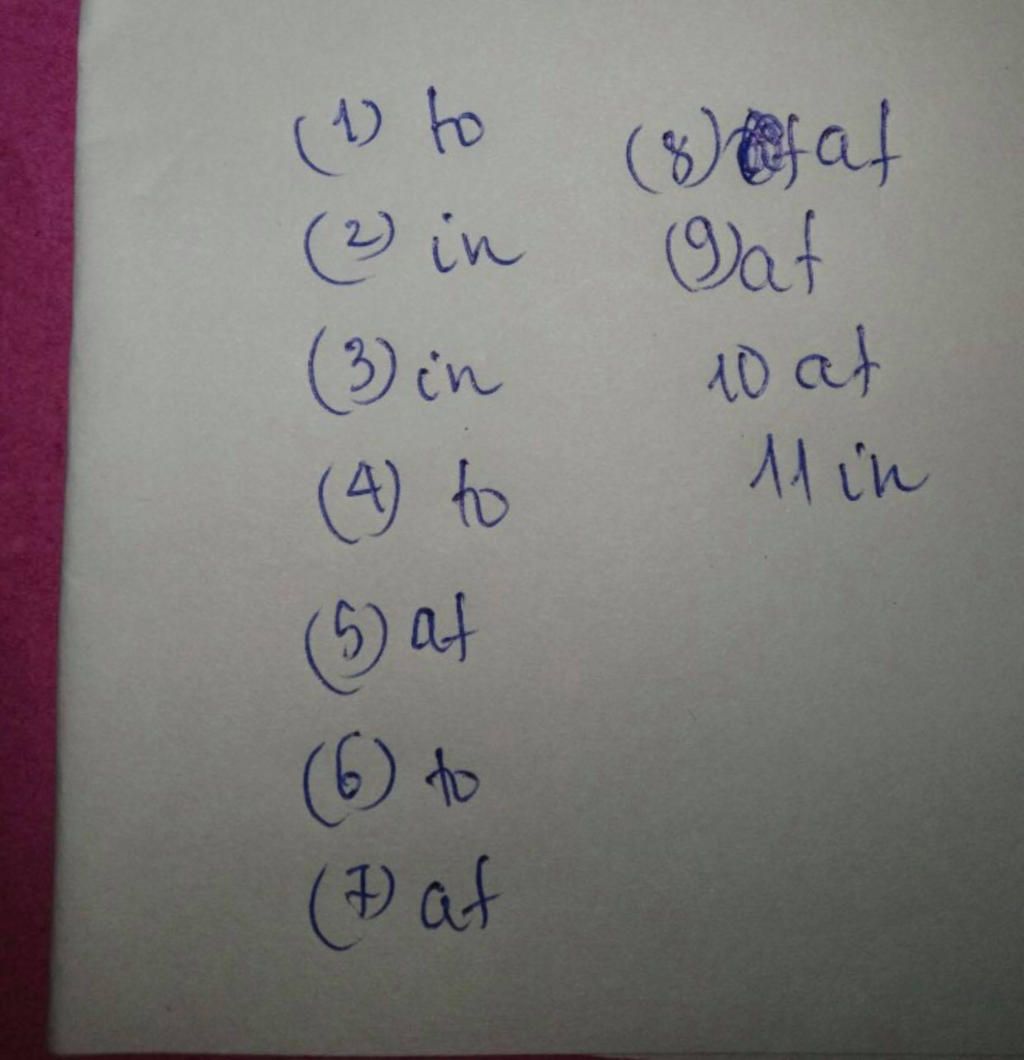 (1) to
(2) in
(3) in
(4) to
(5) at
(6) to
(7) at
(8) at
(9) at
10 at
11 in